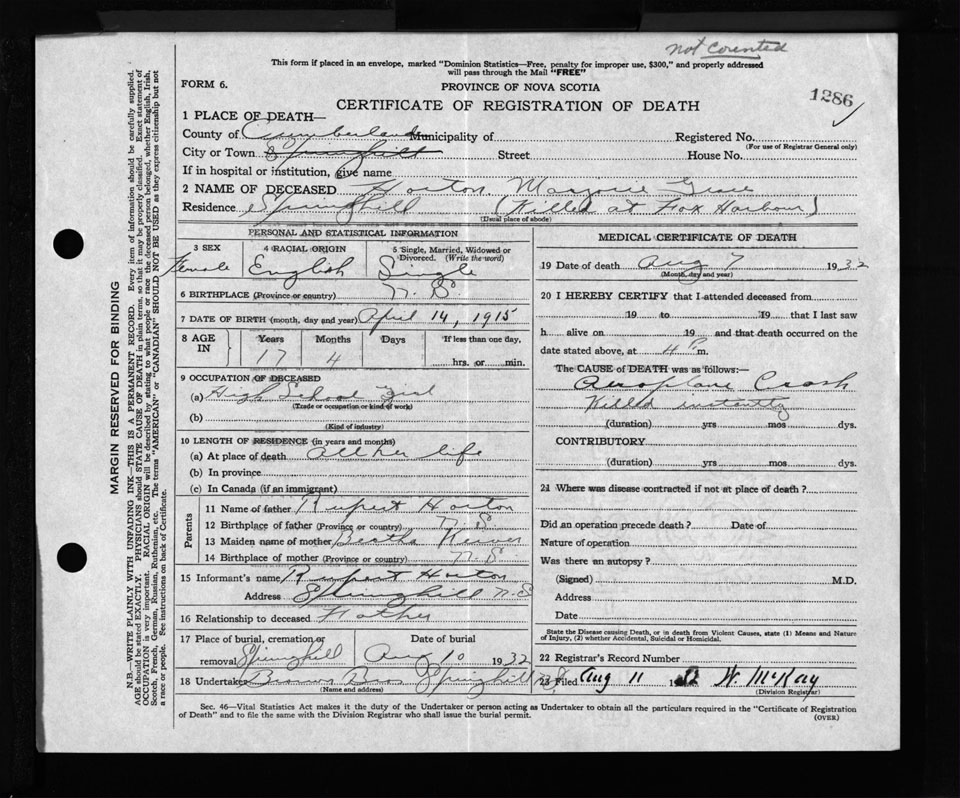 not counted
This form if placed in an envelope, marked "Dominion Statistics—Free, penalty for improper use, $300," and properly addressed
will pass through the Mail "FREE"
1286
FORM 6.
PROVINCE OF NOVA SCOTIA
CERTIFICATE OF REGISTRATION OF DEATH
1 PLACE OF DEATH—
County of Cumberland Municipality of Registered No.
(For use of Registrar General only)
City or Town Springhill Street House No.
If in hospital or institution, give name
2 NAME OF DECEASED Horton, Marjorie
Residence Springhill (Killed at Fox Harbour)
(Usual place of abode)
PERSONAL AND STATISTICAL INFORMATION
3 SEX 4 RACIAL ORIGIN 5 Single, Married, Widowed or
Divorced. (Write the word)
Female English Single
6 BIRTHPLACE (Province or country) N. S.
7 DATE OF BIRTH (month, day and year) April 14, 1915
8 AGE IN Years Months Days If less than one day,
17 4 hrs. or min.
9 OCCUPATION OF DECEASED
(a) High School Girl
(Trade or occupation or kind of work)
(b)
(Kind of industry)
10 LENGTH OF RESIDENCE (in years and months)
(a) At place of death all her life
(b) In province
(c) In Canada (if an immigrant)
Parents
11 Name of father Rupert Horton
12 Birthplace of father (Province or country) N. S.
13 Maiden name of mother Bertha
14 Birthplace of mother (Province or country) N. S.
15 Informant's name Rupert Horton
Address Springhill N.S
16 Relationship to deceased Father
17 Place of burial, cremation or Date of burial
removal Springhill Aug 10 1932
18 Undertaker Brown Bros Springhill
(Name and address)
MEDICAL CERTIFICATE OF DEATH
19 Date of death Aug 7 1932
(Month, day and year)
20 I HEREBY CERTIFY that I attended deceased from
19 to 19 that I last saw
h alive on 19 and that death occurred on
date stated above, at 4 P m.
The CAUSE of DEATH was as follows:—
Aeroplane Crash
Killed instantly
(duration) yrs mos dys.
CONTRIBUTORY
(duration) yrs mos dys.
21 Where was disease contracted if not at place of death?
Did an operation precede death? Date of
Nature of operation
Was there an autopsy?
(Signed) M.D.
Address
Date
State the Disease causing Death, or in death from Violent Causes, state (1) Means and Nature
of Injury, (2) whether Accidental, Suicidal or Homicidal.
22 Registrar's Record Number
23 Filed Aug 11 W. McKay
(Division Registrar)
Sec. 46—Vital Statistics Act makes it the duty of the Undertaker or person acting as Undertaker to obtain all the particulars required in the "Certificate of Registration
of Death" and to file the same with the Division Registrar who shall issue the burial permit.
(OVER)
MARGIN RESERVED FOR BINDING
N.B.—WRITE PLAINLY WITH UNFADING INK—THIS IS A PERMANENT RECORD. Every item of information should be carefully supplied.
AGE should be stated EXACTLY. PHYSICIANS should STATE CAUSE OF DEATH in plain terms, so that it may be properly classified. Exact statement of
OCCUPATION is very important. RACIAL ORIGIN will be described by stating to what people or race the deceased person belonged, whether English, Irish,
Scotch, French, German, Russian, Ruthenian, etc. The terms "AMERICAN" or "CANADIAN" SHOULD NOT BE USED as they express citizenship but not
a race or people. See instructions on back of Certificate.